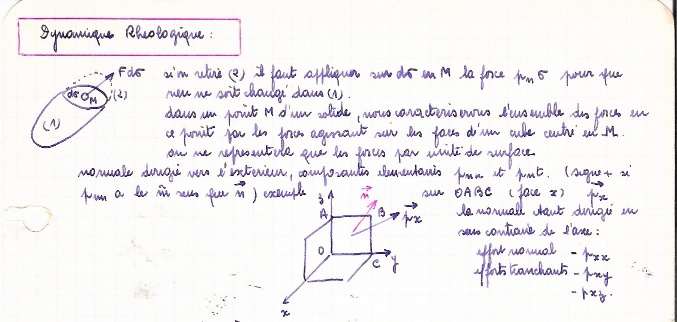 Dynamique Rheologique :
F dσ si on retire (2) il faut appliquer sur dσ en M la force pn σ pour que
dσ M (2)
(1)
rien ne soit changé dans (1).
dans un point M d'un solide, nous caracteriserons l'ensemble des forces en
ce point par les forces agissant sur les faces d'un cube centré en M.
on ne representera que les forces par unité de surface
normale dirigée vers l'exterieur, composantes elementaires pnn et pnt. (signe + si
pnn a le m̂ sens que n⃗) exemple sur OABC (face x) p⃗x
z
n⃗
A B p⃗x
O C y
x
la normale étant dirigée en
sens contraire de l'axe :
effort normal - pxx
efforts tranchants - pxy
- pxz.